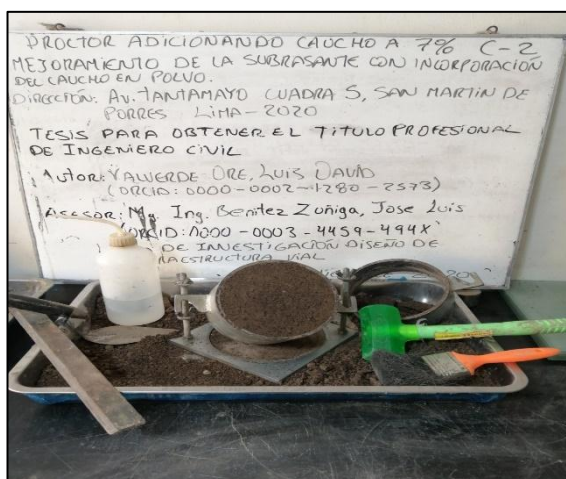 PROCTOR ADICIONANDO CAUCHO A 7% C-2
MEJORAMIENTO DE LA SUBRASANTE CON INCORPORACIÓN
DEL CAUCHO EN POLVO.
DIRECCIÓN: AV. TANTAMAYO CUADRA 5, SAN MARTIN DE
PORRES LIMA-2020
TESIS PARA OBTENER EL TITULO PROFESIONAL
DE INGENIERO CIVIL
AUTOR: VALVERDE ORE, LUIS DAVID
(ORCID: 0000-0002-1280-2573)
ASESOR: Mg. Ing. Benitez Zuñiga, Jose Luis
ORCID: 0000-0003-4459-494X
DE INVESTIGACIÓN DISEÑO DE
RAESTRUCTURA VIAL